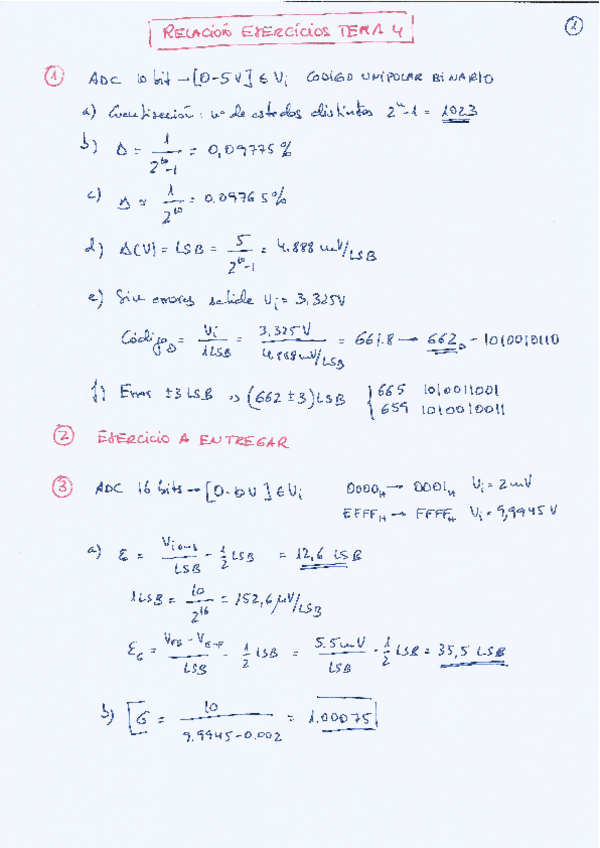 RELACIÓN EJERCICIOS TEMA 4
1
1 ADC 10 bit → [0-5V] ∈ Vi CODIGO UNIPOLAR BINARIO
a) Cuantización: nº de estados distintos 2^n-1 = 1023
b) Δ = 1/(2^10-1) = 0,09775%
c) Δ ≈ 1/2^10 = 0.09765%
d) Δ(V) = LSB = 5/(2^10-1) = 4.888 mV/LSB
e) Sin errores salida Vi = 3,325V
Código_D = Vi/1LSB = 3,325V/(4,888mV/LSB) = 661.8 → 662_D - 1010010110
f) Error ±3 LSB ⇒ (662 ± 3) LSB { 665 1010011001
659 1010010011
2 EJERCICIO A ENTREGAR
3 ADC 16 bits → [0-10V] ∈ Vi 0000_H → 0001_H Vi = 2mV
EFFF_H → FFFF_H Vi = 9,9945V
a) ε = V_{i0→1}/LSB - 1/2 LSB = 12,6 LSB
1LSB = 10/2^16 = 152,6 μV/LSB
ε_G = (V_FS - V_{E→F})/LSB - 1/2 LSB = 5.5mV/LSB - 1/2 LSB = 35,5 LSB
b) G = 10/(9.9945-0.002) = 1.00075